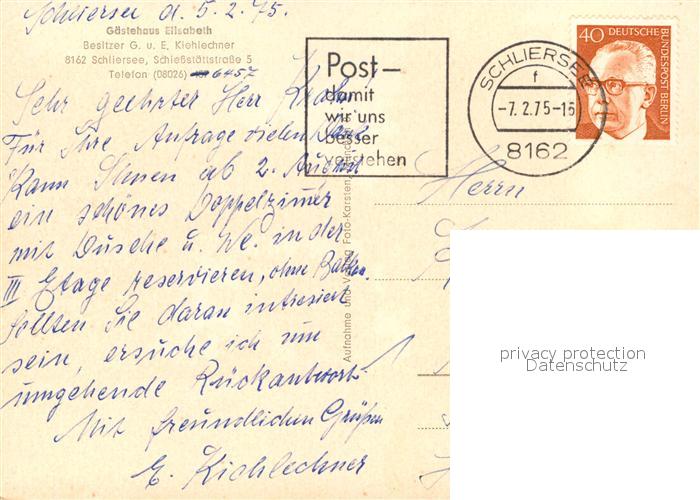 Schliersee d. 5.2.75.
Gästehaus Elisabeth
Besitzer G. u. E. Kiehlechner
8162 Schliersee, Schießstättstraße 5
Telefon (08026) 6457
Sehr geehrter Herr
Für Ihre Anfrage vielen Dank
Kann Ihnen ab 2. August
ein schönes Doppelzimmer
mit Dusche u. We. in der
III Etage reservieren, ohne Balkon.
Sollten Sie daran intresiert
sein, ersuche ich um
umgehende Rückantwort.
Mit freundlichen Grüßen
E. Kiehlechner
Post –
damit
wir uns
besser
verstehen
SCHLIERSEE 1
f
-7.2.75-16
8162
40 DEUTSCHE
BUNDESPOST BERLIN
Herrn
Aufnahme und Verlag Foto-Karsten,
privacy protection
Datenschutz